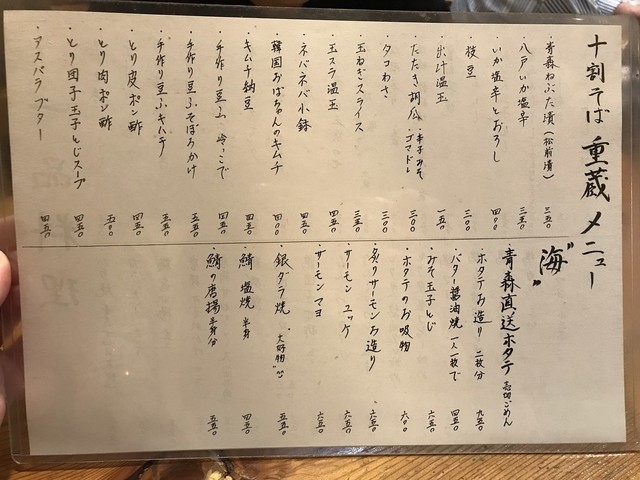 十割そば 重蔵 メニュー
・青森ねぶた漬(松前漬) 三五〇
・八戸いか塩辛 三五〇
・いか塩辛とおろし 四〇〇
・枝豆 三〇〇
・出汁温玉 一五〇
・たたき胡瓜 ・辛子みそ ・ゴマドレ 三〇〇
・タコわさ 三〇〇
・玉ねぎスライス 三五〇
・玉スラ温玉 四五〇
・ネバネバ小鉢 四五〇
・韓国おばちゃんのキムチ 四〇〇
・キムチ納豆 四五〇
・手作り豆ふ 冷・こで 四五〇
・手作り豆ふそぼろかけ 五五〇
・手作り豆ふキムチ 五五〇
・とり皮ポン酢 四五〇
・とり肉ポン酢 五〇〇
・とり団子玉子とじスープ 四五〇
・アスパラバター 四五〇
"海"
青森直送ホタテ 売切ごめん
・ホタテお造り 二枚分 九五〇
・バター醤油焼 一人一枚で 四五〇
・みそ玉子とじ 六五〇
・ホタテのお吸物 六〇〇
・炙りサーモンお造り 六五〇
・サーモンユッケ 六五〇
・サーモンマヨ 六五〇
・銀ダラ焼 ・大好物"" 五五〇
・鯖塩焼 半身 四五〇
・鯖の唐揚 半身分 五五〇